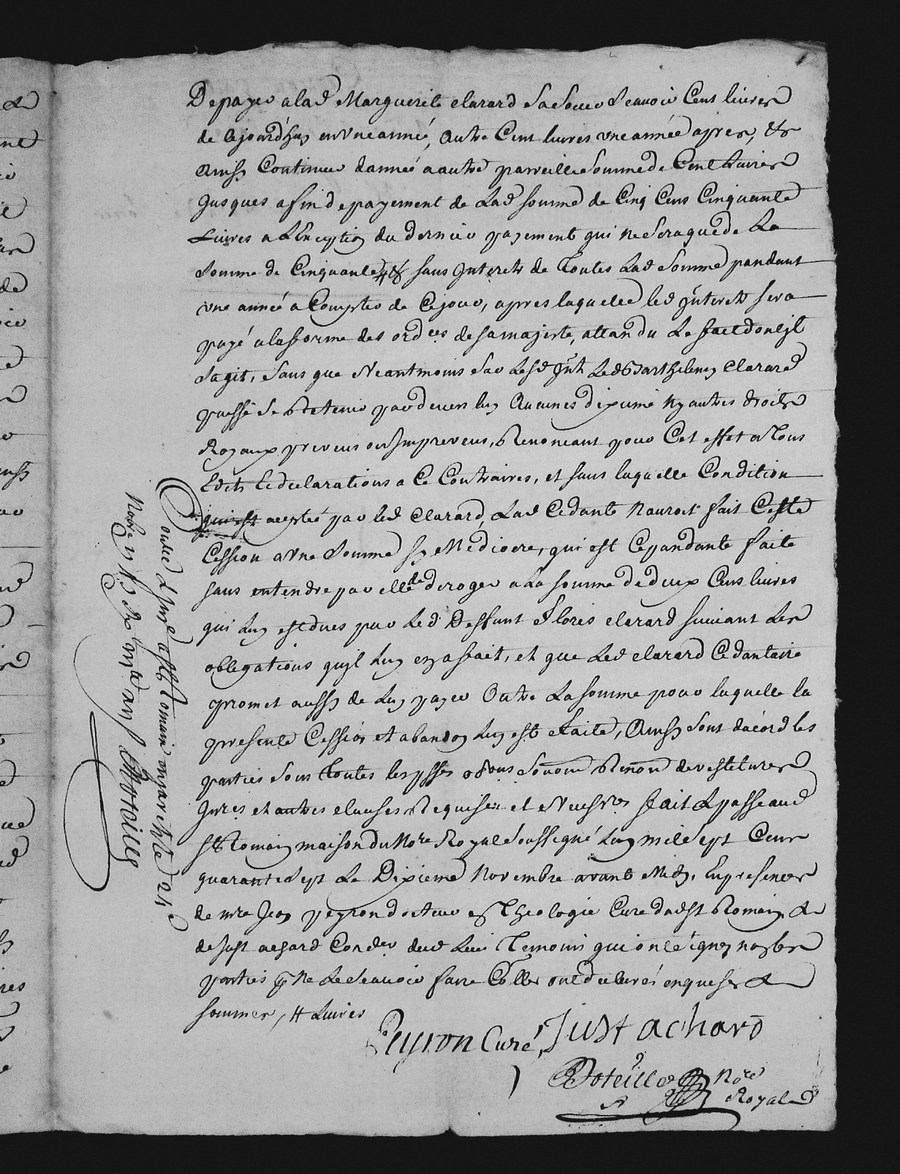 De payer a lad Marguerite clarard sa soeur scavoir Cens livres
de cejourdhuy en une année, autre Cent livres une année apres, et
ainsy Continuer dannée a autre pareille somme de Cent Livres
Jusques a fin de payement de Lad somme de Cinq Cens Cinquante
Livres a L'Exception du dernier payement qui ne sera que de La
somme de Cinquante # sans Interets de Toutes Lad somme pandant
une année a Compter de Cejour, apres laquelle led Interets sera
payé a la forme des ordces de sa majesté, attandu Le fait dont il
s'agit, sans que Neantmoins Led Barthelemy clarard
puisse se Retenir par devers luy Aucunes dixieme Ny autres droits
Royaux preveus ou Impreveus, Renoncant pour Cet effet a Tous
Edits Et declarations a Ce Contraires, et sans laquelle Condition
qui est aceptée par led clarard, Lad Cedante N'auroit fait Cette
Cession a Une somme sy Mediocre, qui est Cepandante faite
sans entendre par elle de deroger a La somme de deux Cens livres
qui Luy est dues par Led Deffunt Floris clarard suivant Les
obligations quyl Luy en a fait, et que Led clarard Cedantaire
promet aussy de Luy payer Outre La somme pour laquelle la
presente Cession et abandon luy est Faite, Ainsy sont dacord les
parties sous Toutes les
Jures et autres clauses Requises et Necessres fait et passe aud
St Romain maison du Nore Royal soussigné L'an mil sept Cens
quarante sept Le Dixieme Novembre avant Midy, En presences
de mre Jean peyron docteur en Theologie Curé dud St Romain et
de Just achard Cordier dud Lieu Temoins qui ont signez non les
parties pr Ne Le scavoir faire Comme elles ont declaré enquises et
sommées, # Livres
Peyron Curé, Just achard
Boteille Nore
Royal
Controllé a St Romain en par
Novre 1747
Boteille